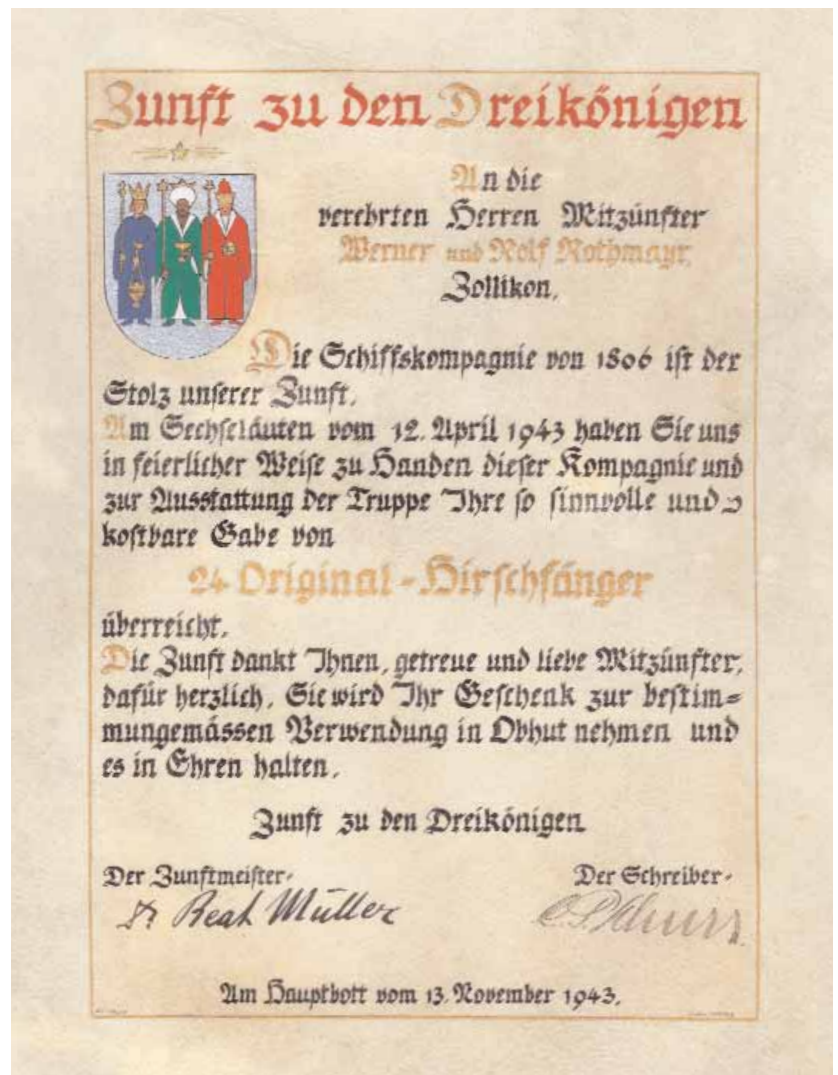 Zunft zu den Dreikönigen
An die
verehrten Herren Mitzünfter
Werner und Rolf Rothmayr,
Zollikon.
Die Schiffskompagnie von 1806 ist der
Stolz unserer Zunft.
Am Sechseläuten vom 12. April 1943 haben Sie uns
in feierlicher Weise zu Handen dieser Kompagnie und
zur Ausstattung der Truppe Ihre so sinnvolle und
kostbare Gabe von
24 Original-Hirschfänger
überreicht.
Die Zunft dankt Ihnen, getreue und liebe Mitzünfter,
dafür herzlich. Sie wird Ihr Geschenk zur bestim=
mungemässen Verwendung in Obhut nehmen und
es in Ehren halten.
Zunft zu den Dreikönigen
Der Zunftmeister
Der Schreiber
Dr Beat Müller
Am Hauptbott vom 13. November 1943.